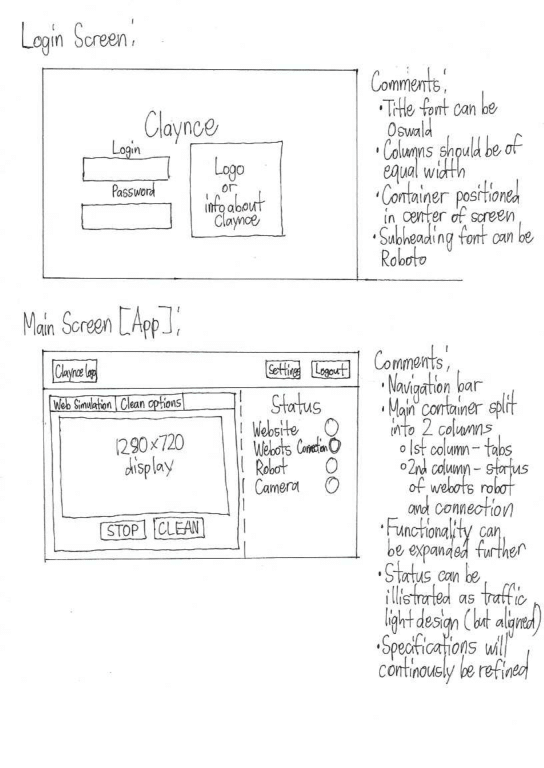 Login Screen:
Claynce
Login
Password
Logo
or
info about
Claynce
Comments:
• Title font can be
Oswald
• Columns should be of
equal width
• Container positioned
in center of screen
• Subheading font can be
Roboto
Main Screen [App]:
Claynce logo
Settings
Logout
Web Simulation
Clean options
1280x720
display
STOP
CLEAN
Status
Website
Webots Connection
Robot
Camera
Comments:
• Navigation bar
• Main container split
into 2 columns
o 1st column - tabs
o 2nd column - status
of webots robot
and connection
• Functionality can
be expanded further
• Status can be
illistrated as traffic
light design (but aligned)
• Specifications will
continously be refined